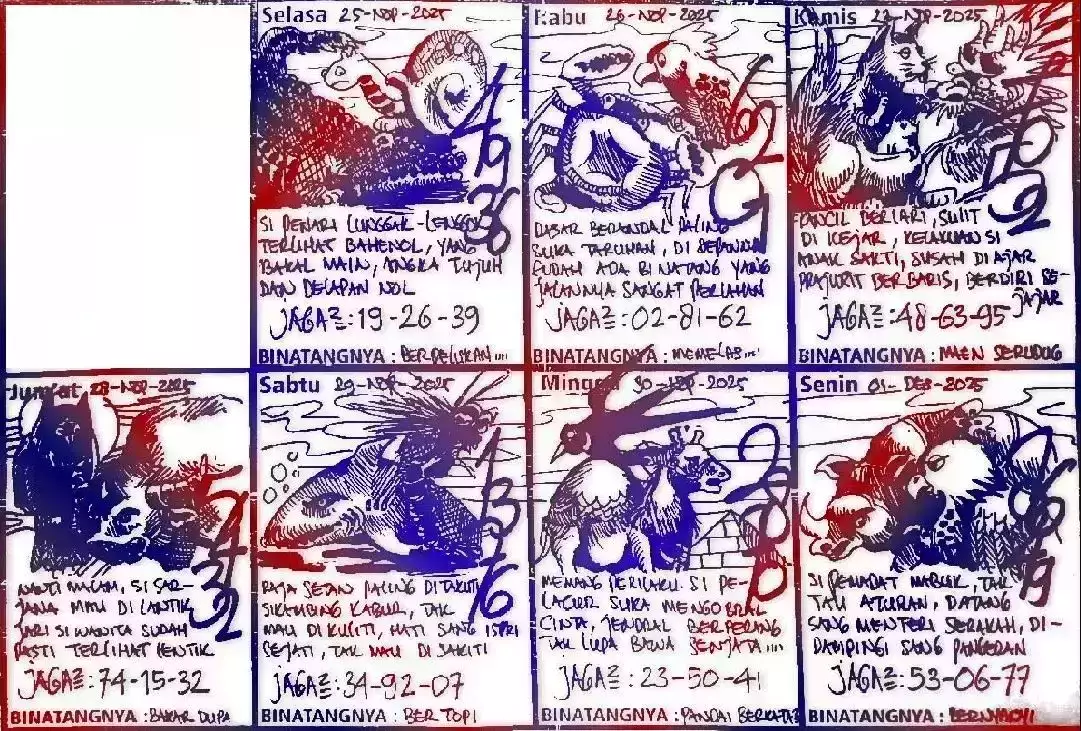 Selasa 25-NOP-2025
4
79
36
SI PENARI LUNGGAK-LENGGOK
TERLIHAT BAHENOL, YANG
BAKAL MAIN, ANGKA TUJUH
DAN DELAPAN NOL
JAGA²=:19-26-39
BINATANGNYA : BERPELISKAN....
Rabu 26-NOP-2025
6
2
DASAR BERANDAL PALING
SUKA TARUHAN, DI DEPANNYA
SUDAH ADA BINATANG YANG
JALANNYA SANGAT PERLAHAN
JAGA²=:02-81-62
BINATANGNYA : MEMELAS....
Kamis 27-NOP-2025
KANCIL BERLARI, SULIT
DI KEJAR, KELAKUAN SI
ANAK SAKTI, SUSAH DI AJAR
PRAJURIT BERBARIS, BERDIRI SE-
JAJAR
JAGA²=:48-63-95
BINATANGNYA : MAEN SERUDUG
Jum'at 28-NOP-2025
32
NANTI MALAM, SI SAR-
JANA MAU DI LANTIK
JARI SI WANITA SUDAH
PASTI TERLIHAT LENTIK
JAGA²=:74-15-32
BINATANGNYA : BAKAR DUPA
Sabtu 29-NOP-2025
1
3
76
RAJA SETAN PALING DI TAKUTI
SIKAMBING KABUR, TAK
MAU DI KULITI, HATI SANG ISTRI
SEJATI, TAK MAU DI SAKITI
JAGA²=:34-92-07
BINATANGNYA : BERTOPI
Minggu 30-NOP-2025
2
8
MEMANG PERILAKU SI PE-
LACUR SUKA MENGOBRAL
CINTA, JENDRAL BERPERANG
TAK LUPA BAWA SENJATA....
JAGA²=:23-50-41
BINATANGNYA : PANDAI BERKATA²
Senin 01-DES-2025
SI PEMADAT MABUK, TAK
TAU ATURAN, DATANG
SANG MENTERI SERAKAH, DI-
DAMPINGI SANG PANGERAN
JAGA²=:53-06-77
BINATANGNYA : BERNYANYI